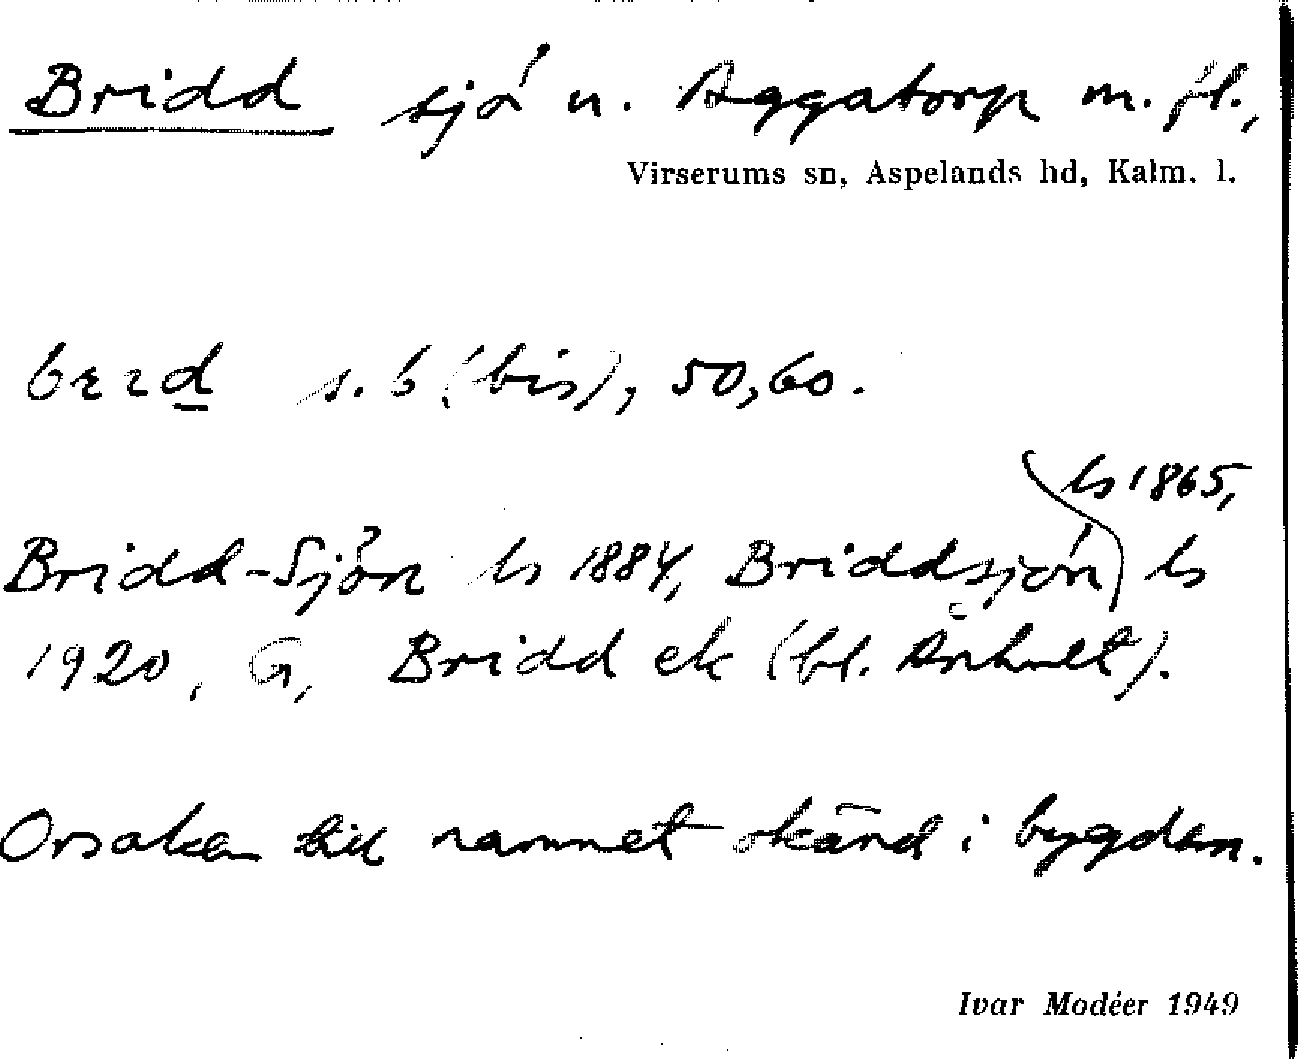 Bridd sjö u. Aggatorp m. fl.,
Virserums sn, Aspelands hd, Kalm. l.
s. 6 (bis), 50, 60.
ls 1865,
Bridd-Sjön ls 1884, Briddsjön ls
1920, G, Bridd ek (bl. Århult).
Orsaken till namnet okänd i bygden.
Ivar Modéer 1949